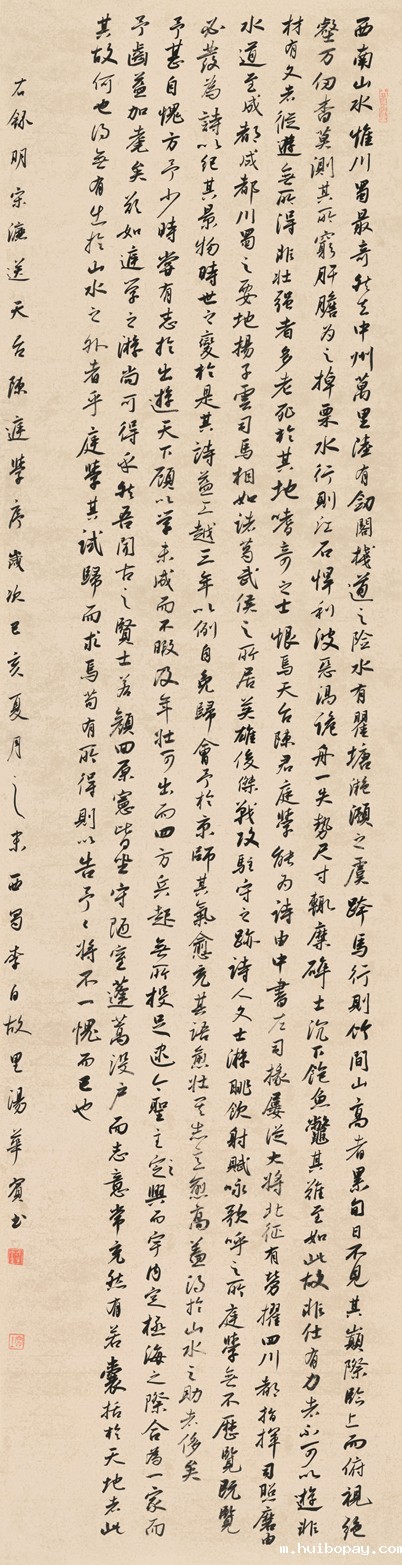 西南山水惟川蜀最奇然去中州萬里陸有劍閣棧道之險水有瞿塘灩澦之虞跨馬行則竹間山高者累旬日不見其巔際臨上而俯視絕
壑万仞杳莫測其所窮肝膽為之掉栗水行則江石悍利波惡渦詭舟一失勢尺寸輒糜碎土沉下飽魚鱉其難至如此故非仕有力者不可以遊非
材有文者縱遊無所得非壯強者多老死於其地嗜奇之士恨焉天台陳君庭學能為詩由中書左司掾屢從大將北征有勞擢四川都指揮司照磨由
水道至成都成都川蜀之要地揚子雲司馬相如諸葛武侯之所居英雄俊傑戰攻駐守之跡詩人文士游眺飲射賦詠歌呼之所庭學無不歷覽既覽
必發為詩以紀其景物時世之變於是其詩益工越三年以例自免歸會予於京師其氣愈充其語愈壯其志意愈高蓋得於山水之助者侈矣
予甚自愧方予少時嘗有志於出遊天下顧以學未成而不暇及年壯可出而四方兵起無所投足逮今聖主定興而宇內定極海之際合為一家而
予齒益加耄矣欲如庭學之游尚可得乎然吾聞古之賢士若顏回原憲皆坐守陋室蓬蒿沒戶而志意常充然有若囊括於天地者此
其故何也得無有出於山水之外者乎庭學其試歸而求焉苟有所得則以告予予將不一愧而已也
右錄明宋濂送天台陳庭學序歲次己亥夏月之末西蜀李白故里湯華賓書
m.huibopay.com